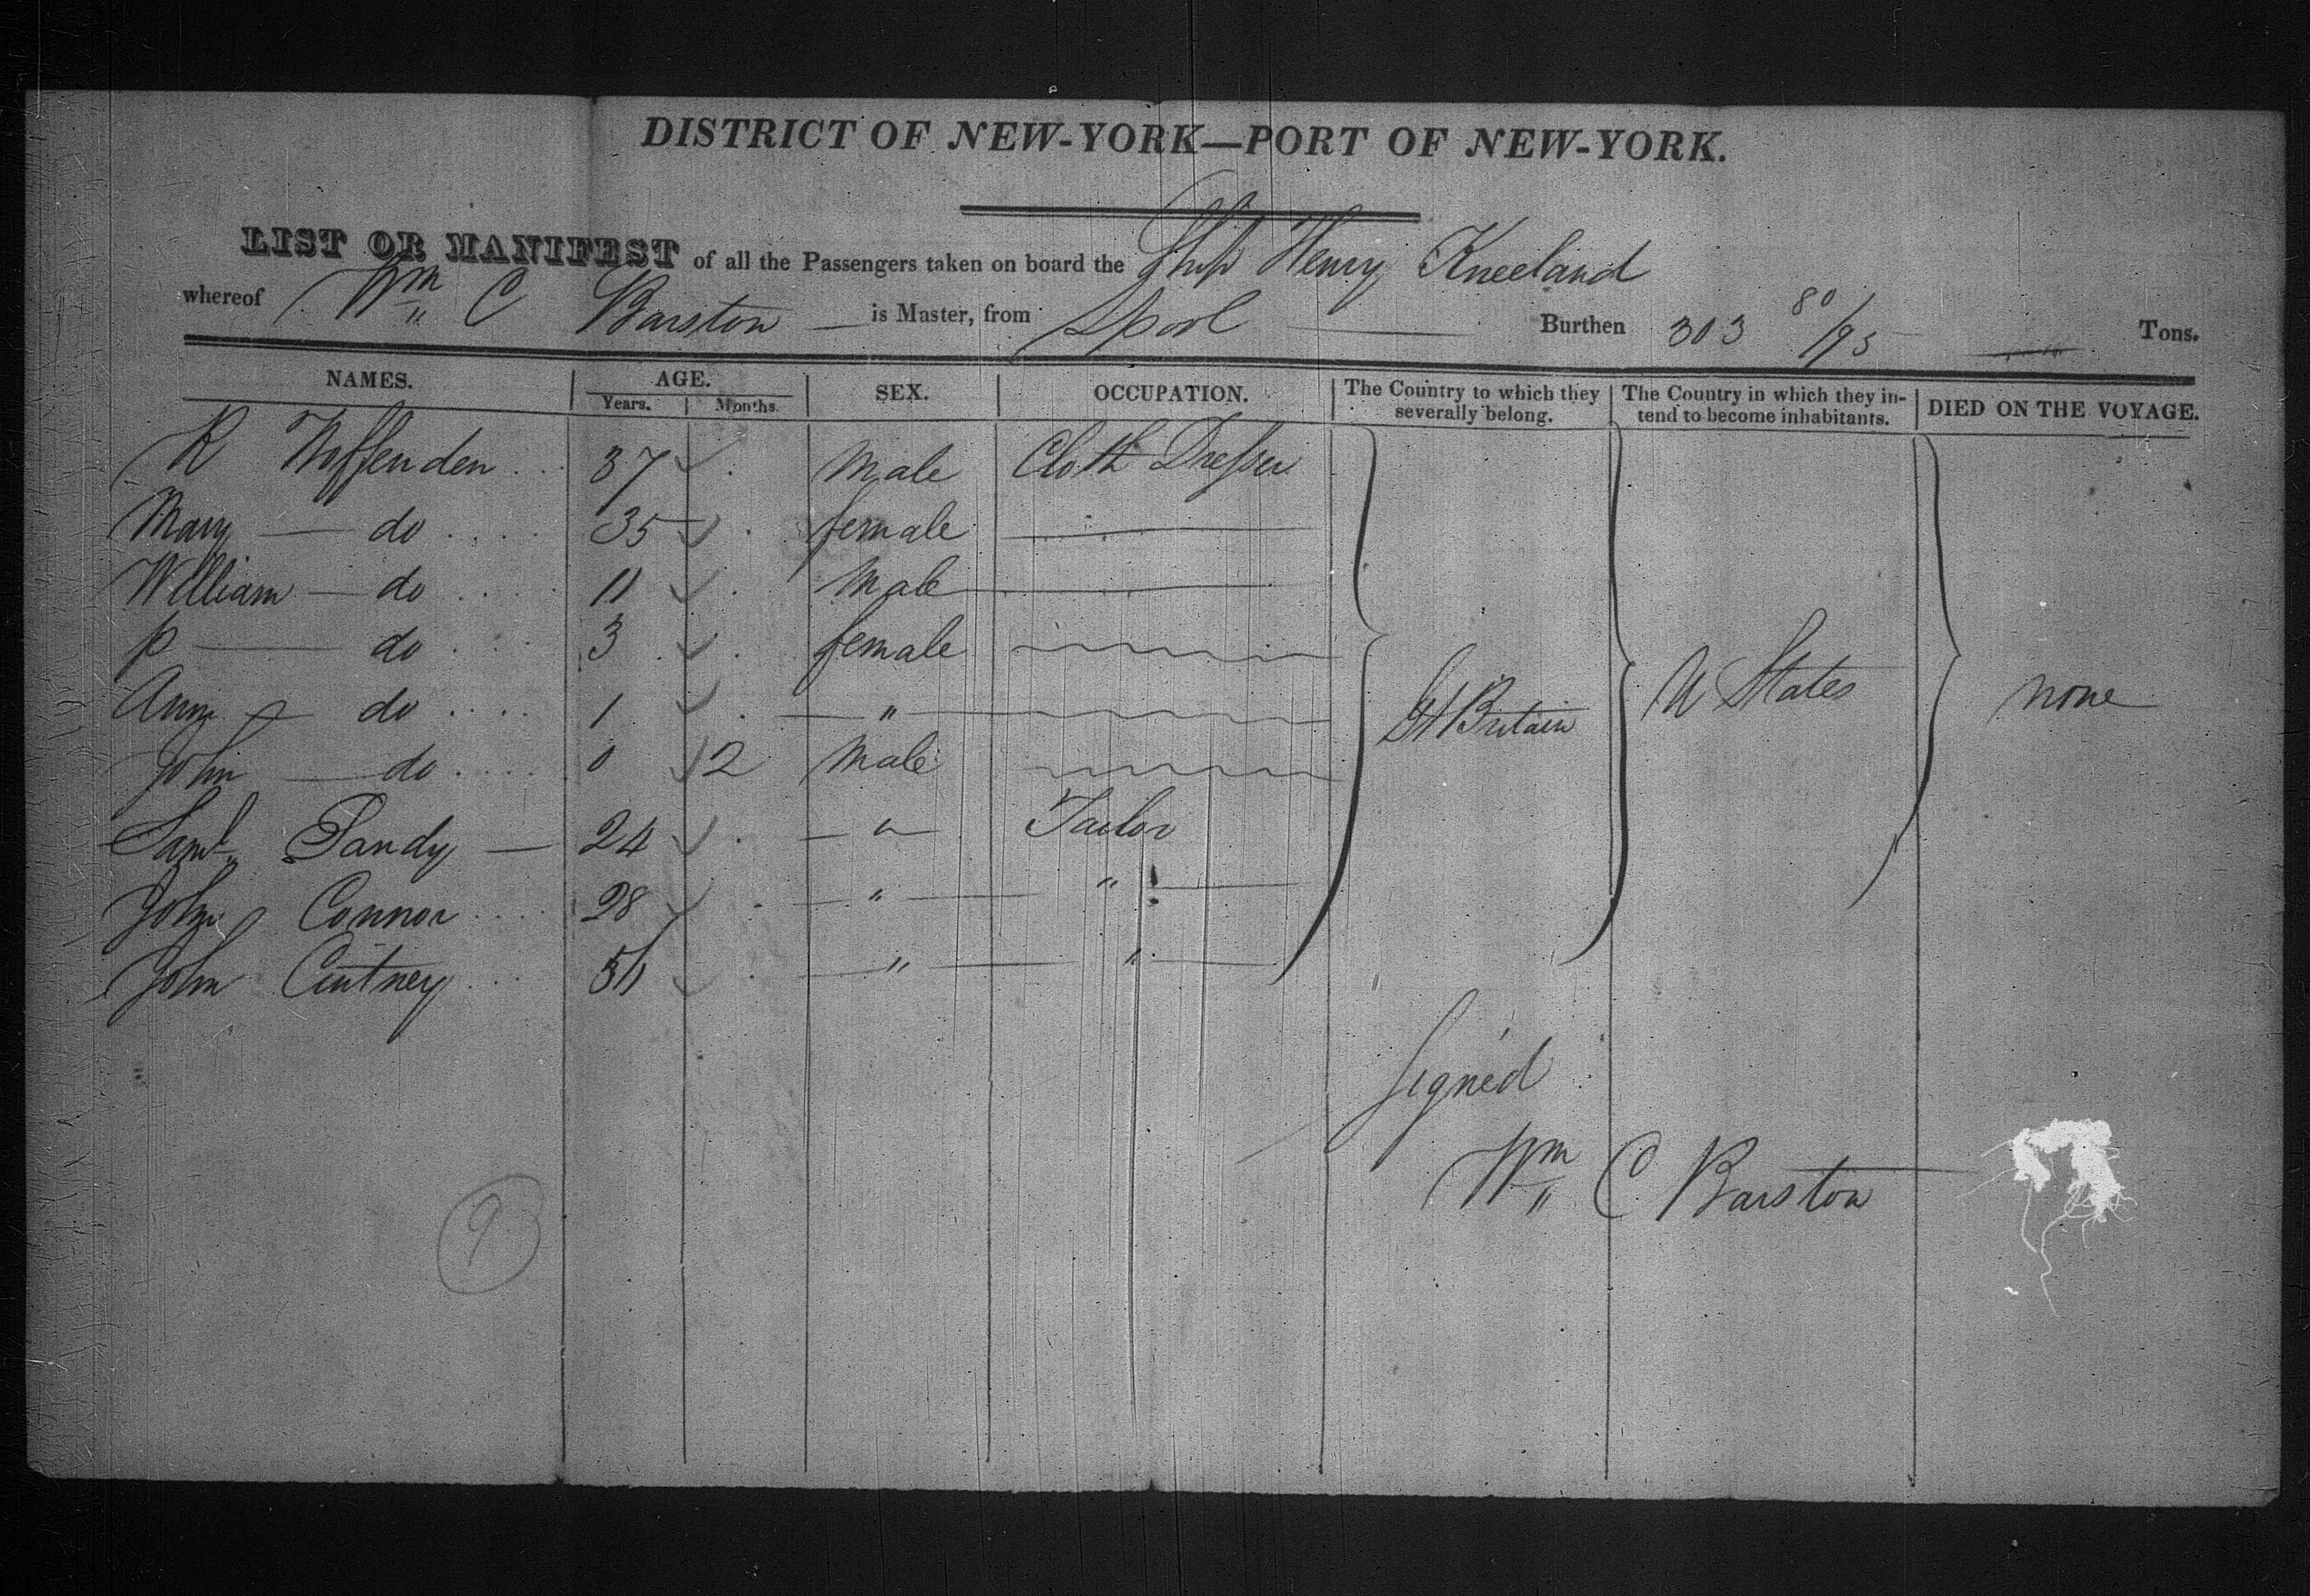 DISTRICT OF NEW-YORK—PORT OF NEW-YORK.
LIST OR MANIFEST of all the Passengers taken on board the Ship Henry Kneeland
whereof Wm C Barstow is Master, from Lpool Burthen 303 80/95 Tons.
NAMES. AGE. SEX. OCCUPATION. The Country to which they severally belong. The Country in which they intend to become inhabitants. DIED ON THE VOYAGE.
Years. Months.
R Noffenden 37 Male Cloth Dresser
Mary — do 35 female
William — do 11 Male
P — do 3 female
Ann — do 1 "
John — do 0 2 Male
Gt Britain U States none
Saml Pandy — 24 " Tailor
John Connor 28 " "
John Cutney " "
Signed
Wm C Barstow
9